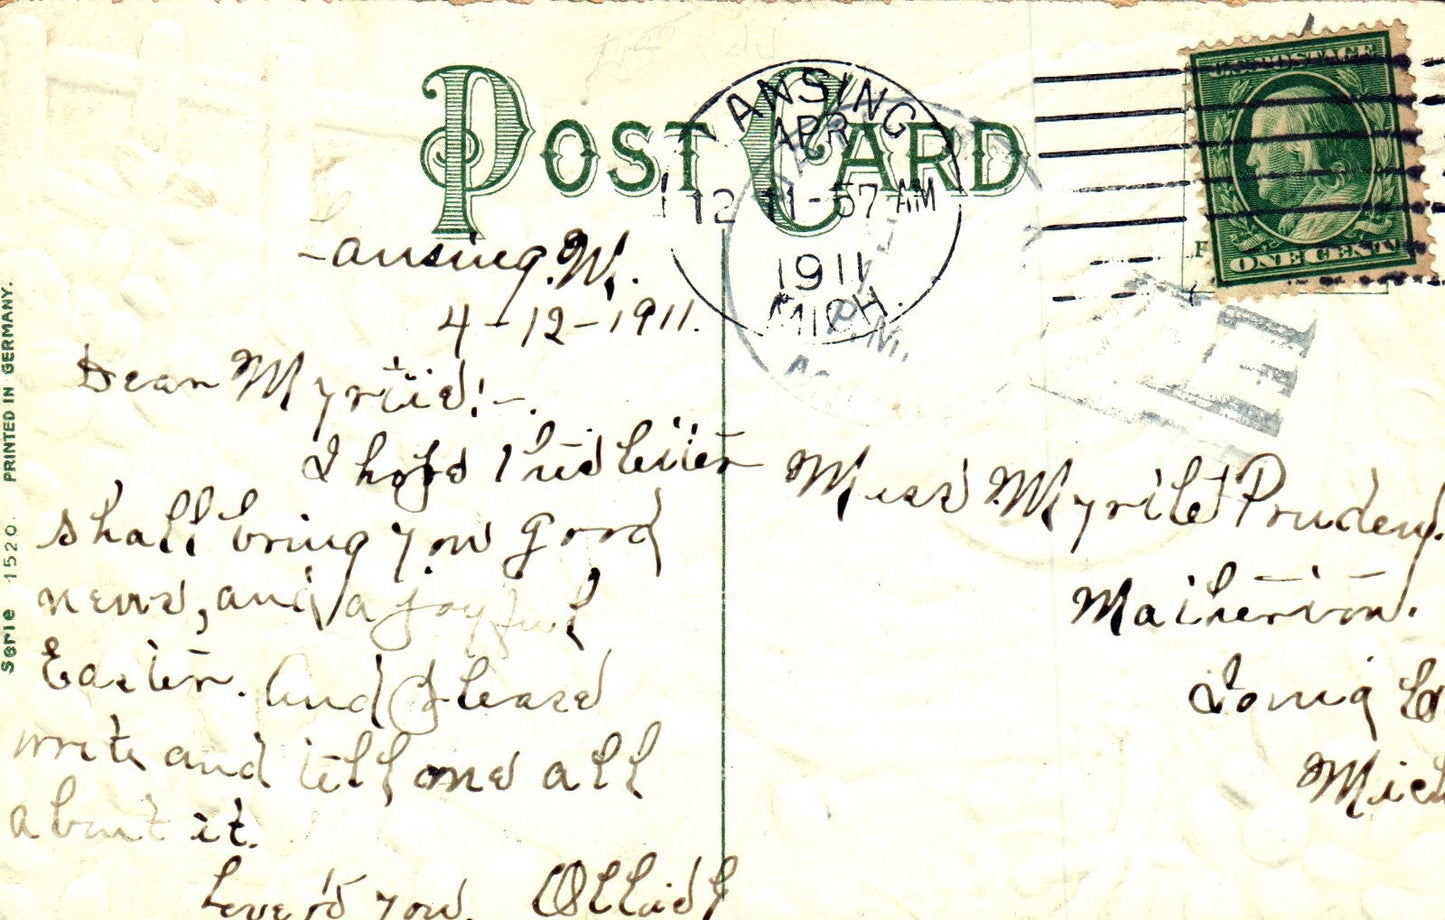 POST CARD
LANSING
APR
12 11-57 AM
1911
MICH.
UNITED STATES POSTAGE
ONE CENT
Serie 1520. PRINTED IN GERMANY.
Lansing. W.
4-12-1911.
Dear Myrtie!-.
I hope this letter
shall bring you good
news, and a joyful
Easter. And please
write and tell me all
about it.
you.
Miss Myrtle Prudey.
Matherton.
Ionia Co
Mich